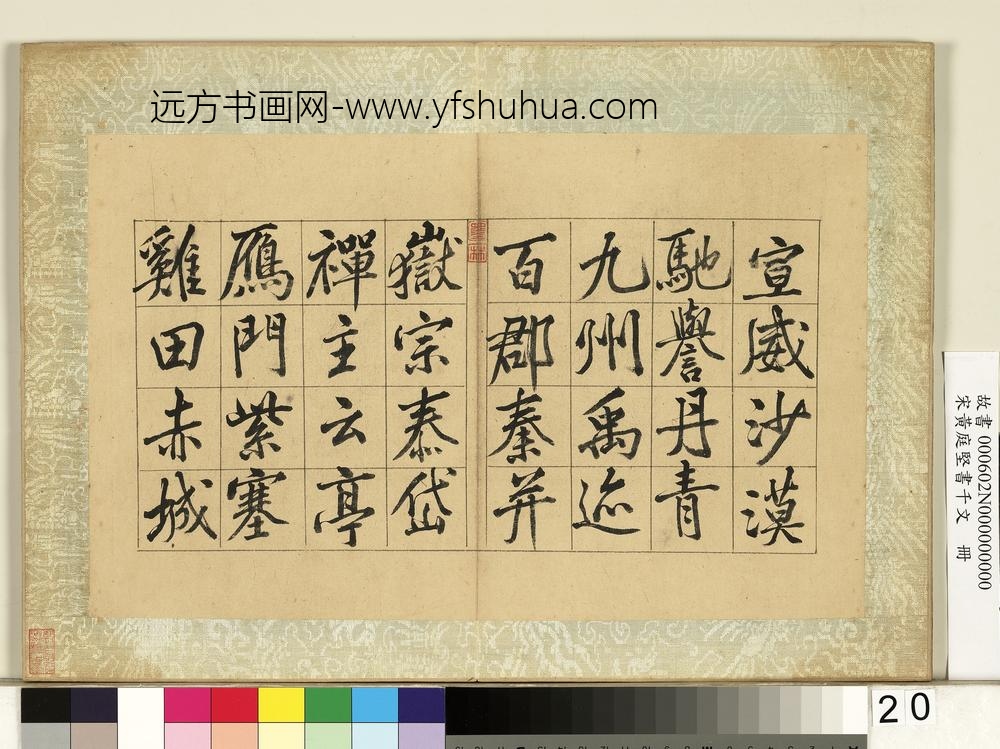 远方书画网-www.yfshuhua.com
宣威沙漠
馳譽丹青
九州禹迹
百郡秦并
嶽宗泰岱
禪主云亭
鴈門紫塞
雞田赤城
故書 000602N000000000
宋黃庭堅書千文 冊
20